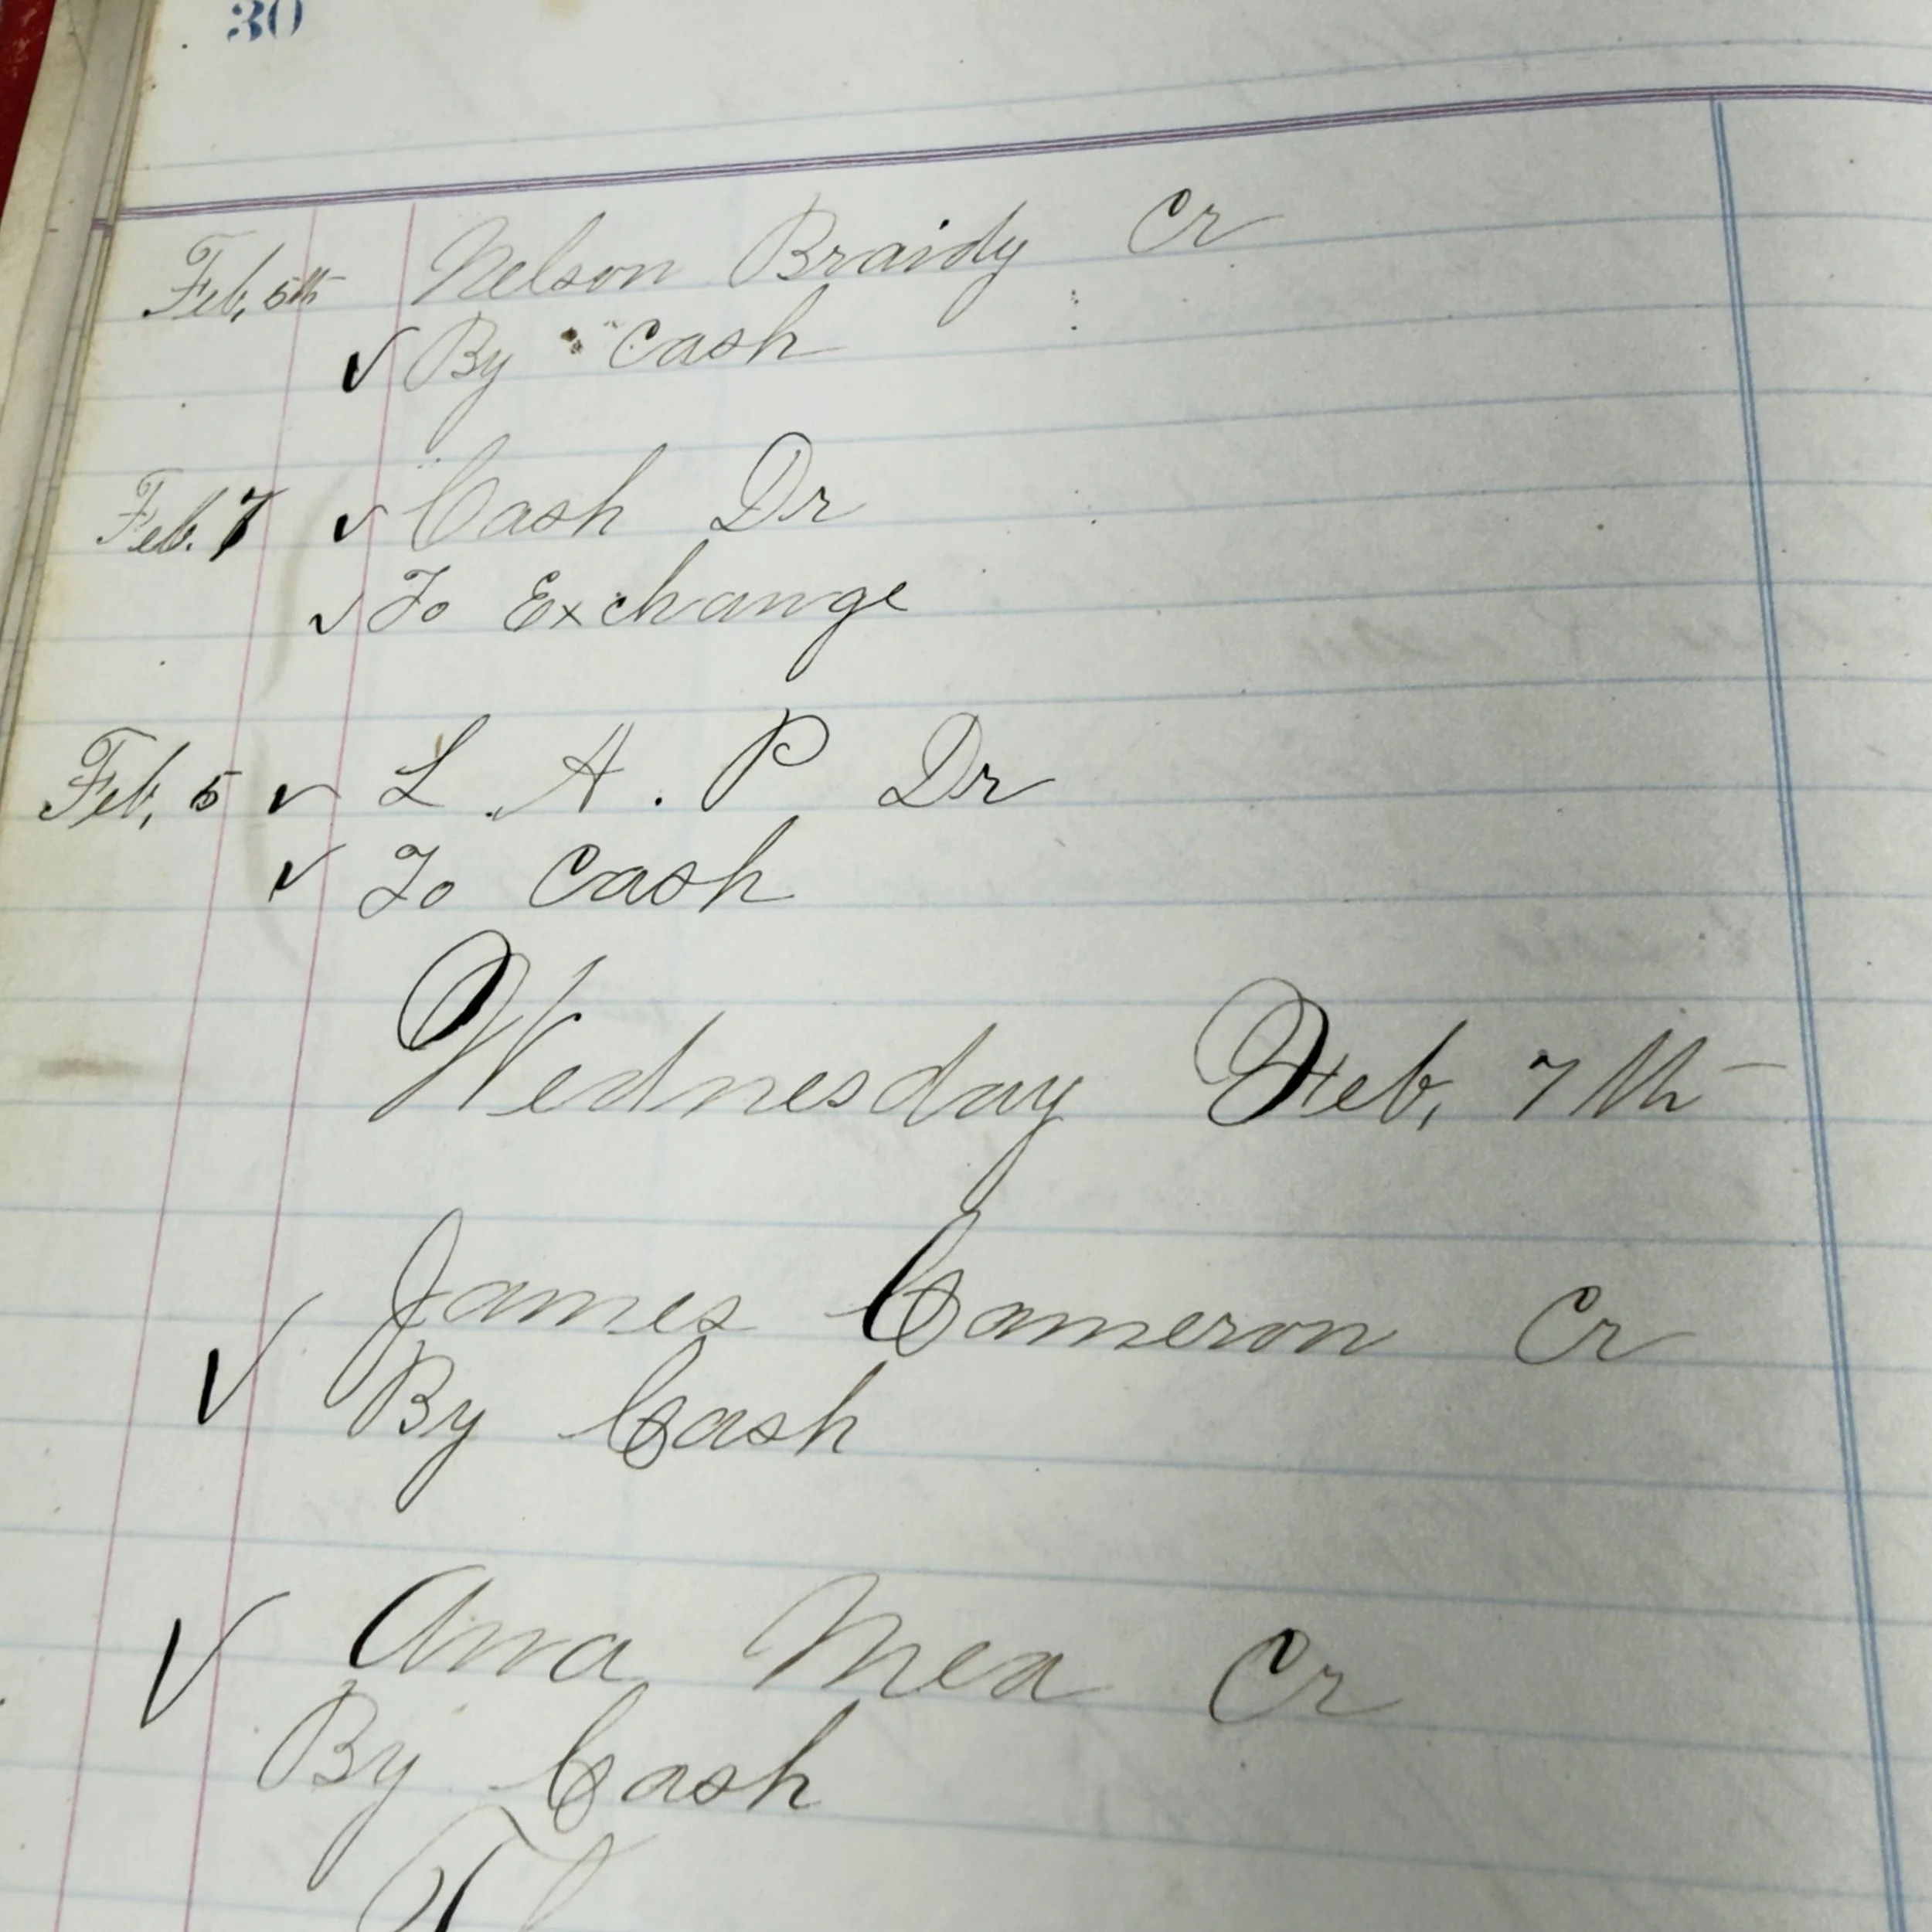 30
Feb, 5th Nelson Braidy Cr
✓ By Cash
Feb. 7 ✓ Cash Dr
✓ To Exchange
Feb, 5 ✓ L. A. P Dr
✓ To Cash
Wednesday Feb, 7th
James Cameron Cr
✓ By Cash
✓ Mea Cr
By Cash